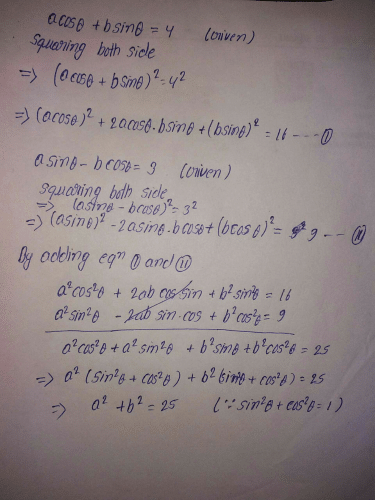 acosθ + bsinθ = 4 (Given)
Squaring both side
=> (acosθ + bsinθ)² = 4²
=> (acosθ)² + 2acosθ.bsinθ + (bsinθ)² = 16 ---- ①
asinθ - bcosθ = 3 (Given)
squaring both side
=> (asinθ - bcosθ)² = 3²
=> (asinθ)² - 2asinθ.bcosθ + (bcosθ)² = 9 --- ⑪
By adding eqⁿ ① and ⑪
a²cos²θ + 2ab cos sin + b²sin²θ = 16
a²sin²θ - 2ab sin.cos + b²cos²θ = 9
a²cos²θ + a²sin²θ + b²sinθ + b²cos²θ = 25
=> a² (sin²θ + cos²θ) + b² (sin²θ + cos²θ) = 25
=> a² + b² = 25 (∵ sin²θ + cos²θ = 1)